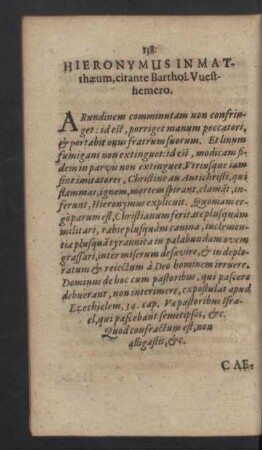 138.
HIERONYMUS IN MAT-
thæum, citante Barthol. Vuest-
hemero.
ARundinem comminutam non confrin-
get: id est, porriget manum peccatori,
& portabit onus fratrum suorum. Et linum
fumigans non extinguet: id est, modicam fi-
dem in paruis non extinguet. Vtriusque iam
sint imitatores, Christi ne an Antichristi, qui
flammas, ignem, mortem spirant, clamāt, in-
ferunt, Hieronymus explicuit. Quoniam er-
gò parum est, Christianum feritate plusquàm
militari, rabie plusquàm canina, inclemen-
tia plusquā tyrannica in palabundam ouem
grassari, inter miserum desæuire, & in deplo-
ratum & reiectum à Deo hominem irruere.
Dominus de hoc cum pastoribus, qui pascere
debuerant, non interimere, expostulat apud
Ezechielem, 34. cap. Væ pastoribus Isra-
el, qui pascebant semetipsos, &c.
Quod confractum est, non
alligastis, &c.
CAE-